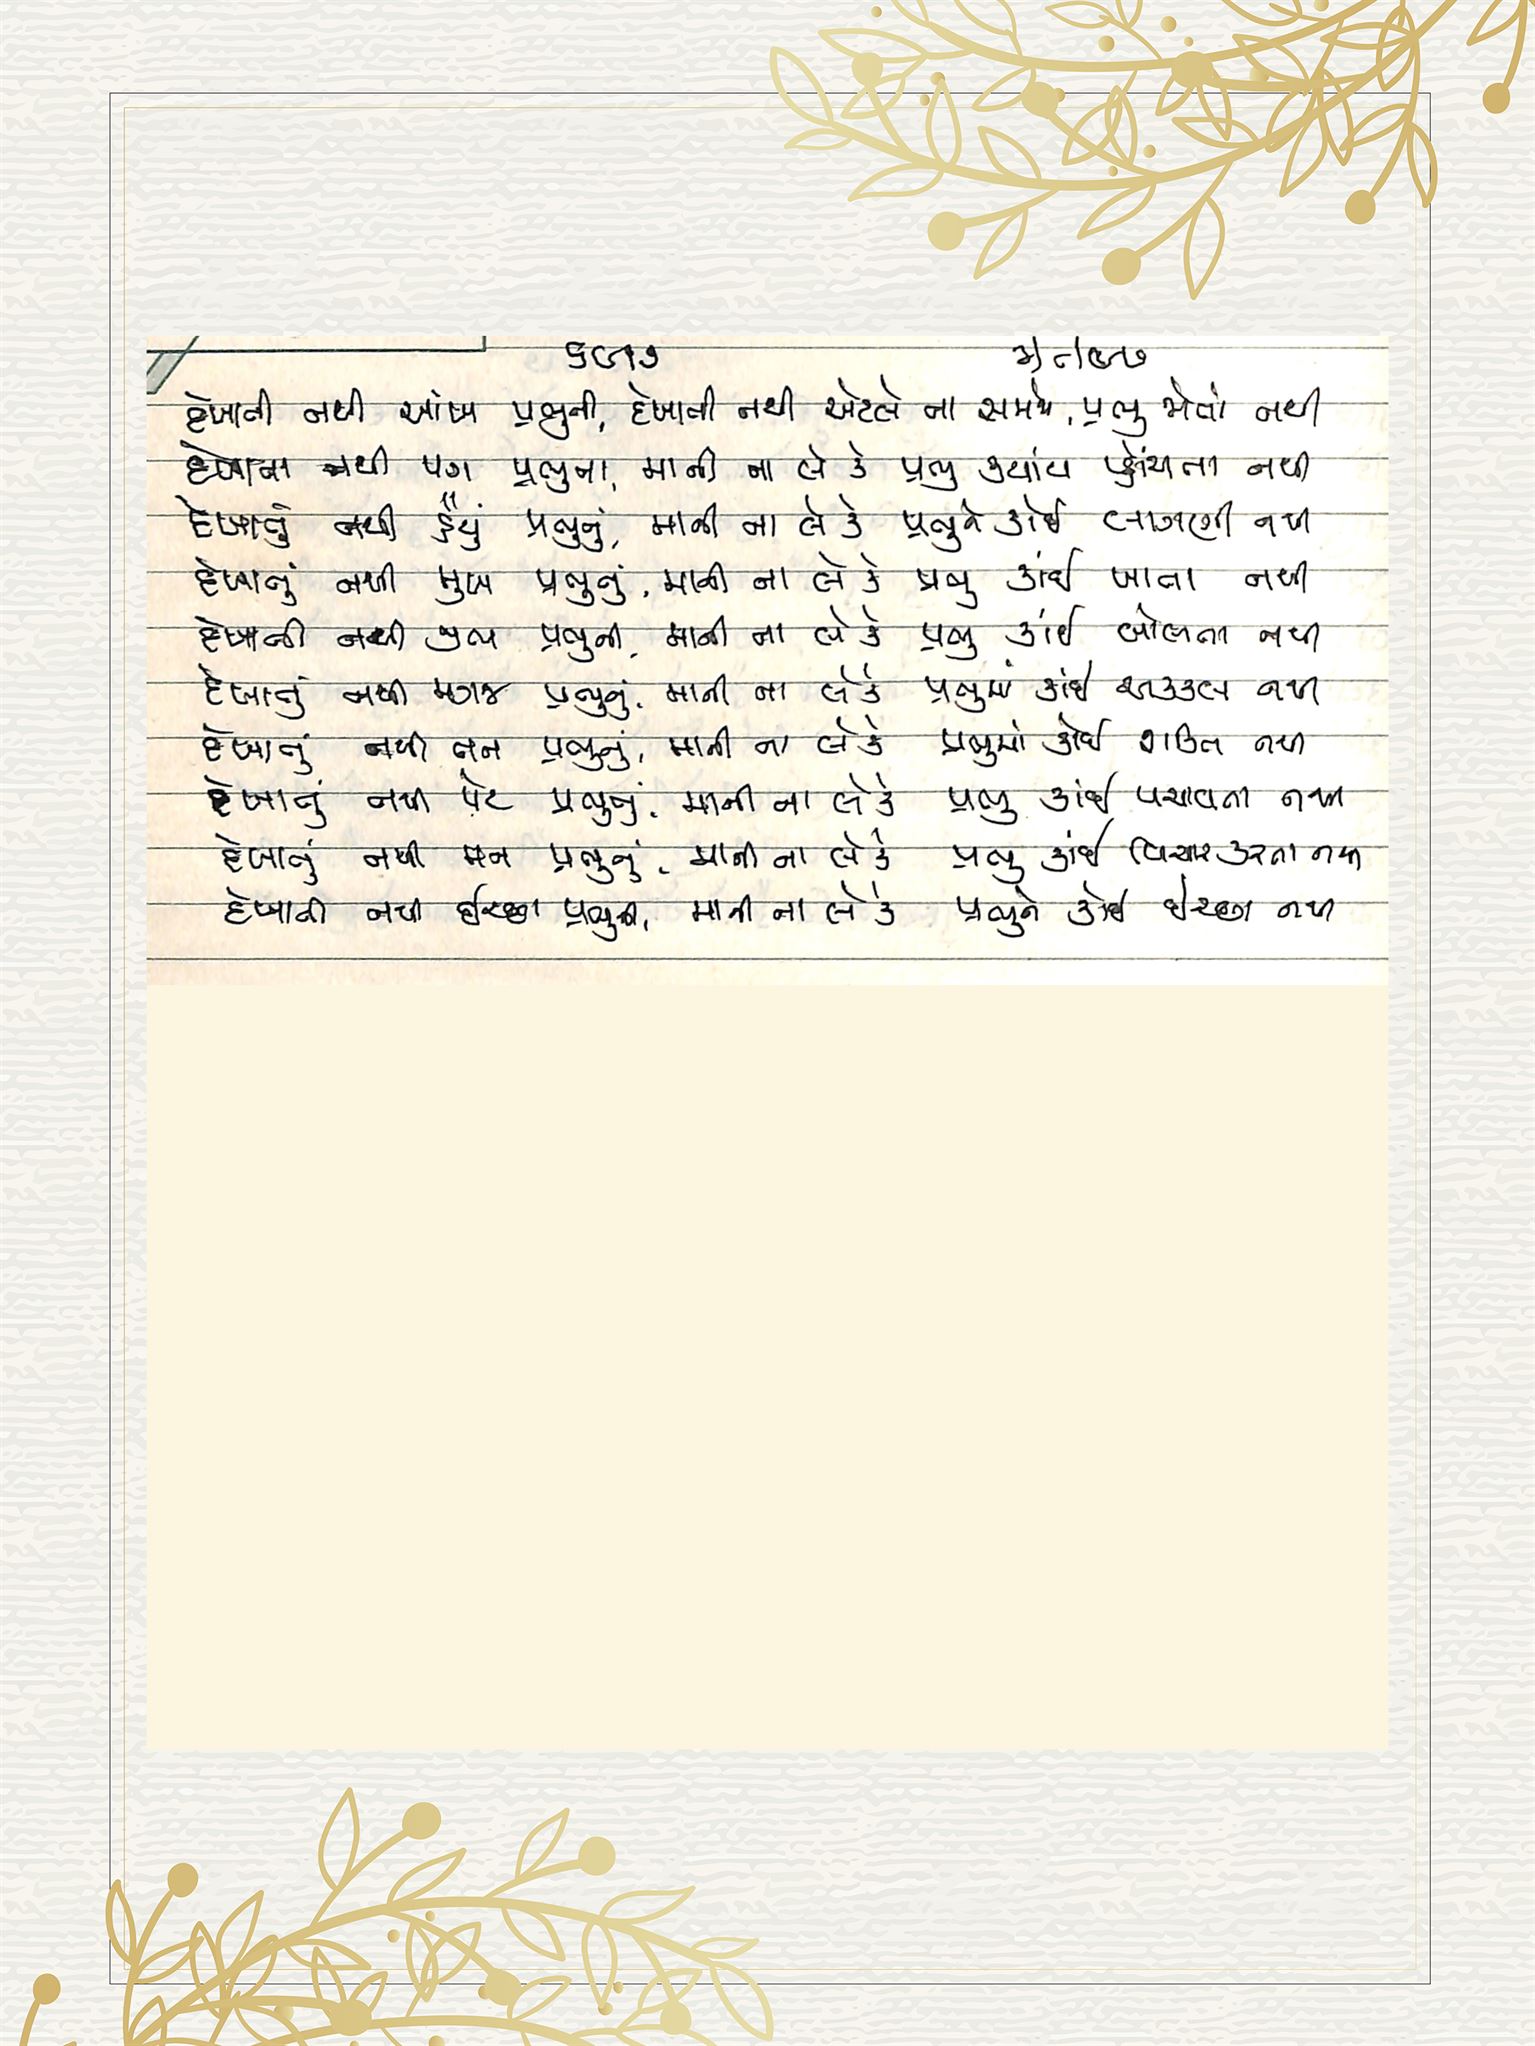 દેખાતી નથી આંખ પ્રભુની, દેખાતી નથી એટલે ના સમજો, પ્રભુ જોતાં નથી
દેખાતા નથી પગ પ્રભુના, માની ના લે કે પ્રભુ ક્યાંય પ્હોંચતા નથી
દેખાતું નથી હૈયું પ્રભુનું, માની ના લે કે પ્રભુને કોઈ લાગણી નથી
દેખાતું નથી મુખ પ્રભુનું, માની ના લે કે પ્રભુ કાંઈ ખાતા નથી
દેખાતી નથી જીભ પ્રભુની, માની ના લે કે પ્રભુ કાંઈ બોલતા નથી
દેખાતું નથી મગજ પ્રભુનું, માની ના લે કે પ્રભુમાં કાંઈ અક્કલ નથી
દેખાતું નથી તન પ્રભુનું, માની ના લે કે પ્રભુમાં કોઈ શક્તિ નથી
દેખાતું નથી પેટ પ્રભુનું, માની ના લે કે પ્રભુ કાંઈ પચાવતા નથી
દેખાતું નથી મન પ્રભુનું, માની ના લે કે પ્રભુ કાંઈ વિચાર કરતા નથી
દેખાતી નથી ઈચ્છા પ્રભુની, માની ના લે કે પ્રભુને કોઈ ઈચ્છા નથી